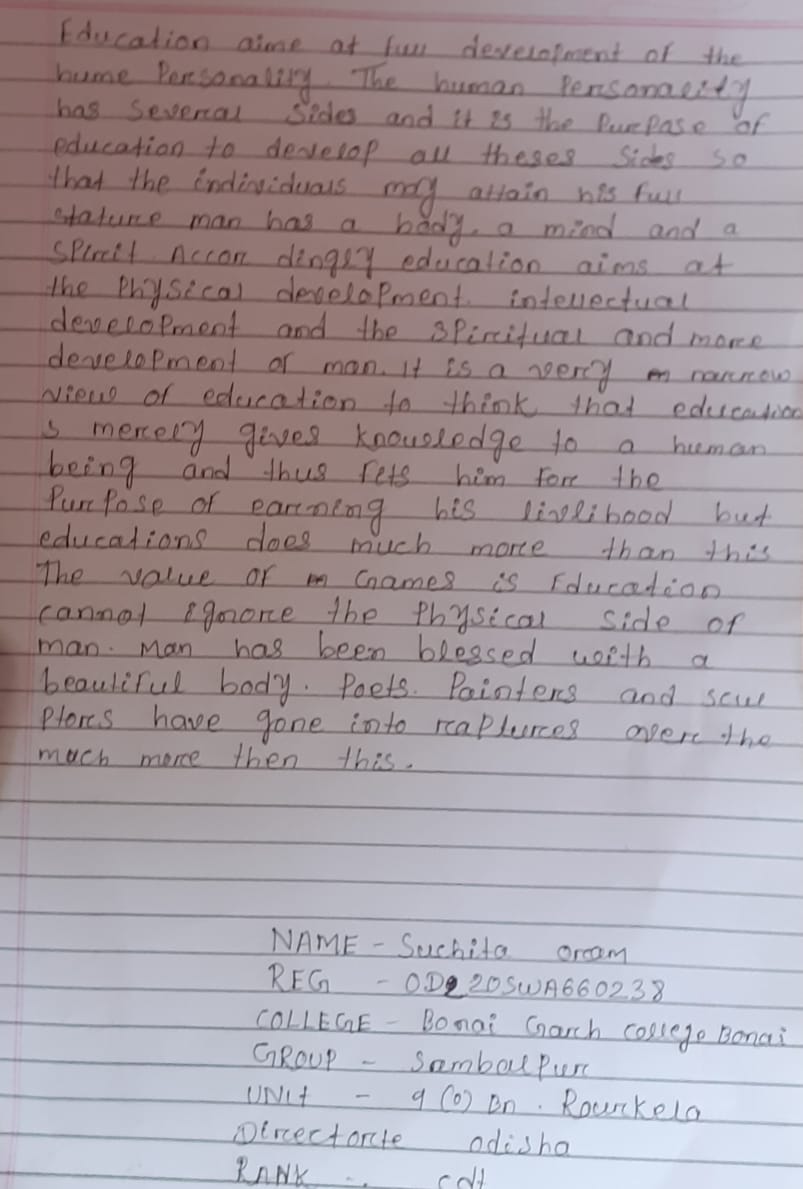 Education aime at full development of the
hume Personality. The human Personality
has Several Sides and it is the Purpose of
education to develop all theses Sides so
that the individuals may attain his full
stature man has a body, a mind and a
Spirit. Accor dingly education aims at
the Physical development. intellectual
development and the Spiritual and more
development of man. It is a very narrow
views of education to think that education
s merely gives knowledge to a human
being and thus fets him for the
Purpose of earning his livelihood but
educations does much more than this
The value of Games is Education
cannot ignore the Physical side of
man. Man has been blessed with a
beautiful body. Poets. Painters and scul
Ptors have gone into raptures over the
much more then this.
NAME - Suchita oram
REG - OD220SWA660238
COLLEGE - Bonai Garh college Bonai
GROUP - Sambalpur
UNIt - 9 (O) Bn. Rourkela
Directorte odisha
RANK - cdt